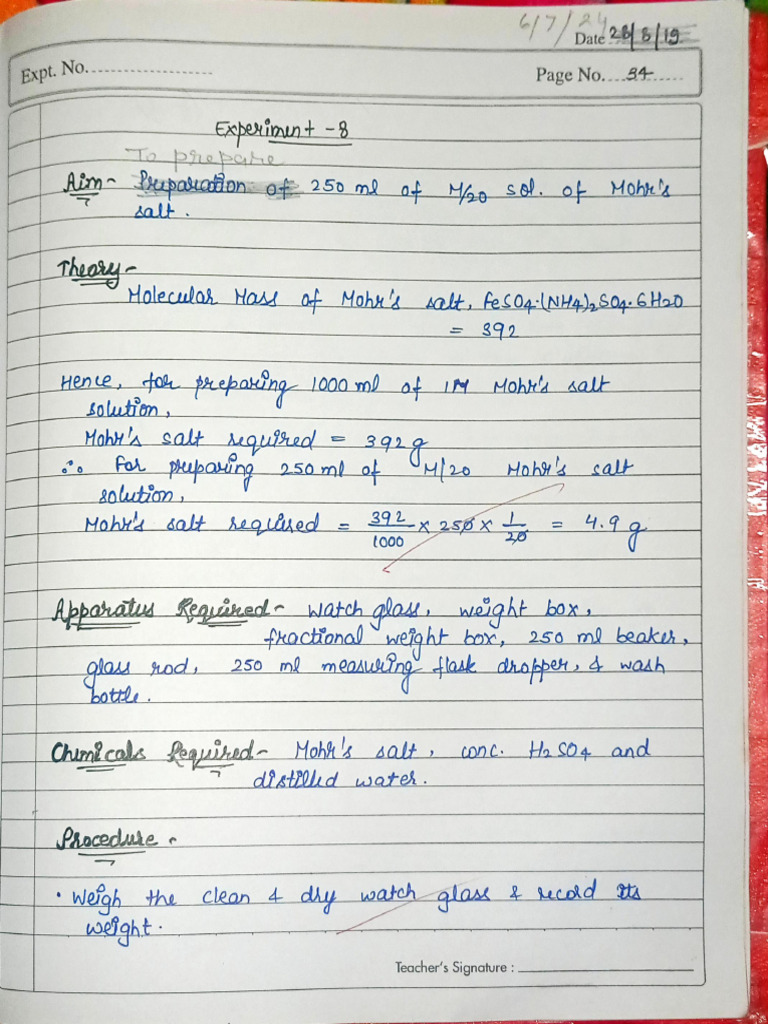 6/7/24
Date 28/8/19
Expt. No.
Page No. 34
Experiment - 8
To prepare
Aim - Preparation of 250 ml of M/20 sol. of Mohr's
salt.
Theory -
Molecular Mass of Mohr's salt, FeSO4.(NH4)2SO4.6H2O
= 392
Hence, for preparing 1000 ml of 1M Mohr's salt
solution,
Mohr's salt required = 392 g
∴ For preparing 250 ml of M/20 Mohr's salt
solution,
Mohr's salt required = 392/1000 × 250 × 1/20 = 4.9 g
Apparatus Required - watch glass, weight box,
fractional weight box, 250 ml beaker,
glass rod, 250 ml measuring flask dropper, & wash
bottle.
Chemicals Required - Mohr's salt, conc. H2SO4 and
distilled water.
Procedure -
• Weigh the clean & dry watch glass & record its
weight.
Teacher's Signature :